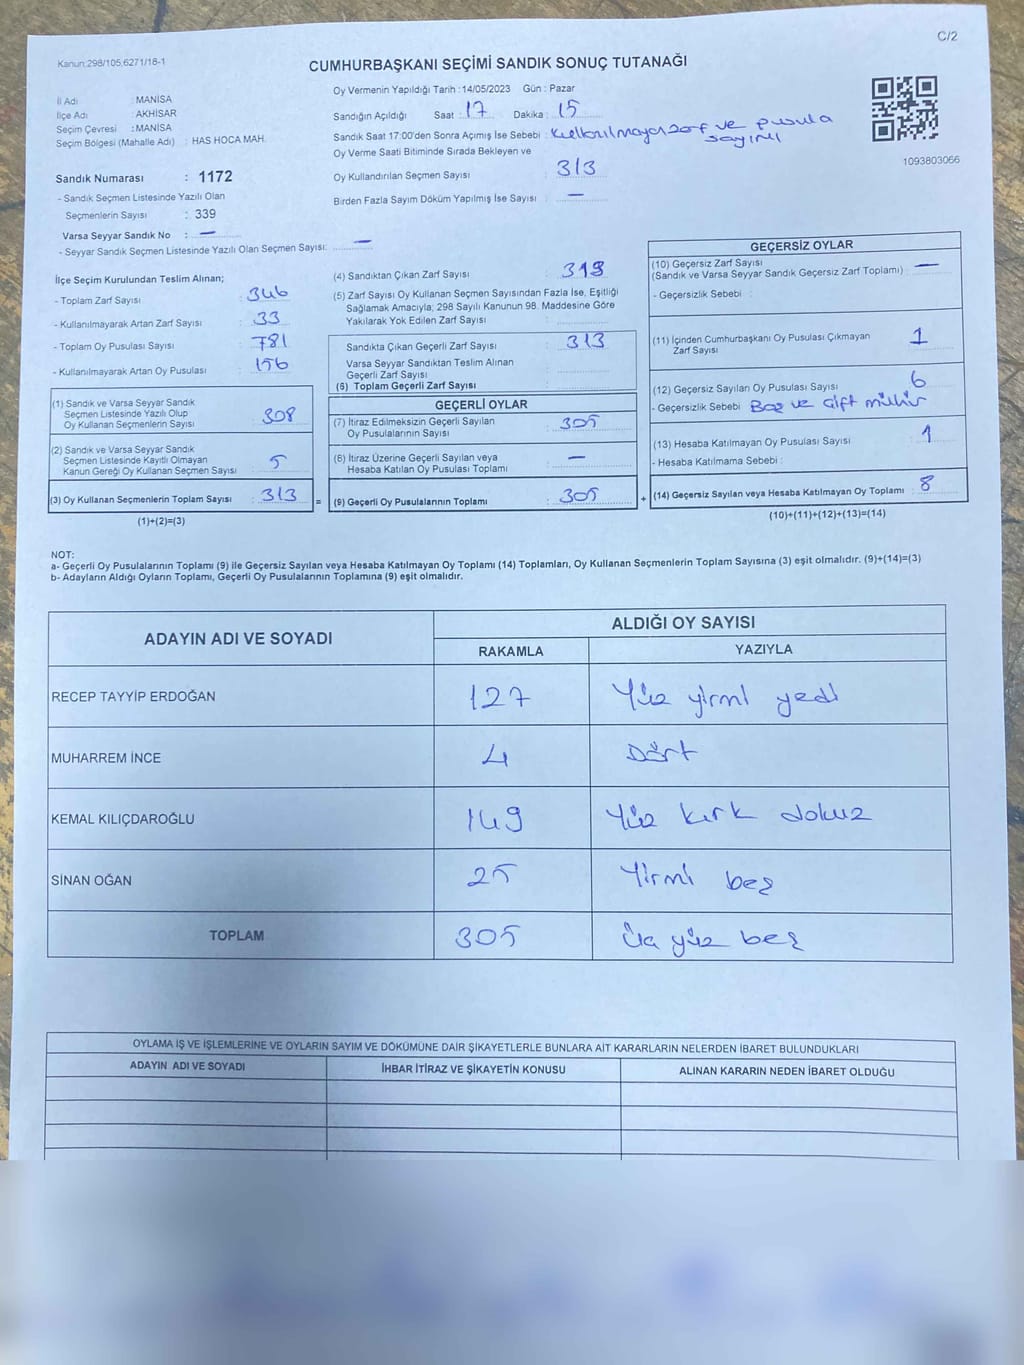 C/2
Kanun:298/105,6271/18-1
CUMHURBAŞKANI SEÇİMİ SANDIK SONUÇ TUTANAĞI
İl Adı : MANİSA
İlçe Adı : AKHİSAR
Seçim Çevresi : MANİSA
Seçim Bölgesi (Mahalle Adı) : HAS HOCA MAH.
Sandık Numarası : 1172
- Sandık Seçmen Listesinde Yazılı Olan
Seçmenlerin Sayısı : 339
Varsa Seyyar Sandık No : —
- Seyyar Sandık Seçmen Listesinde Yazılı Olan Seçmen Sayısı: —
Oy Vermenin Yapıldığı Tarih : 14/05/2023 Gün : Pazar
Sandığın Açıldığı Saat : 17 Dakika : 15
Sandık Saat 17:00'den Sonra Açımış İse Sebebi : ve pusula
sayımı
Oy Verme Saati Bitiminde Sırada Bekleyen ve
Oy Kullandırılan Seçmen Sayısı : 313
Birden Fazla Sayım Döküm Yapılmış İse Sayısı : —
1093803066
İlçe Seçim Kurulundan Teslim Alınan;
- Toplam Zarf Sayısı : 346
- Kullanılmayarak Artan Zarf Sayısı : 33
- Toplam Oy Pusulası Sayısı : 781
- Kullanılmayarak Artan Oy Pusulası : 156
(1) Sandık ve Varsa Seyyar Sandık
Seçmen Listesinde Yazılı Olup
Oy Kullanan Seçmenlerin Sayısı : 308
(2) Sandık ve Varsa Seyyar Sandık
Seçmen Listesinde Kayıtlı Olmayan
Kanun Gereği Oy Kullanan Seçmen Sayısı : 5
(3) Oy Kullanan Seçmenlerin Toplam Sayısı : 313 =
(1)+(2)=(3)
(4) Sandıktan Çıkan Zarf Sayısı : 313
(5) Zarf Sayısı Oy Kullanan Seçmen Sayısından Fazla İse, Eşitliği
Sağlamak Amacıyla; 298 Sayılı Kanunun 98. Maddesine Göre
Yakılarak Yok Edilen Zarf Sayısı :
Sandıkta Çıkan Geçerli Zarf Sayısı : 313
Varsa Seyyar Sandıktan Teslim Alınan
Geçerli Zarf Sayısı :
(6) Toplam Geçerli Zarf Sayısı :
GEÇERLİ OYLAR
(7) İtiraz Edilmeksizin Geçerli Sayılan
Oy Pusulalarının Sayısı : 305
(8) İtiraz Üzerine Geçerli Sayılan veya
Hesaba Katılan Oy Pusulası Toplamı : —
(9) Geçerli Oy Pusulalarının Toplamı : 305 +
GEÇERSİZ OYLAR
(10) Geçersiz Zarf Sayısı
(Sandık ve Varsa Seyyar Sandık Geçersiz Zarf Toplamı) : —
- Geçersizlik Sebebi :
(11) İçinden Cumhurbaşkanı Oy Pusulası Çıkmayan
Zarf Sayısı : 1
(12) Geçersiz Sayılan Oy Pusulası Sayısı : 6
- Geçersizlik Sebebi : Boş ve çift mühür
(13) Hesaba Katılmayan Oy Pusulası Sayısı : 1
- Hesaba Katılmama Sebebi :
(14) Geçersiz Sayılan veya Hesaba Katılmayan Oy Toplamı : 8
(10)+(11)+(12)+(13)=(14)
NOT:
a- Geçerli Oy Pusulalarının Toplamı (9) ile Geçersiz Sayılan veya Hesaba Katılmayan Oy Toplamı (14) Toplamları, Oy Kullanan Seçmenlerin Toplam Sayısına (3) eşit olmalıdır. (9)+(14)=(3)
b- Adayların Aldığı Oyların Toplamı, Geçerli Oy Pusulalarının Toplamına (9) eşit olmalıdır.
ADAYIN ADI VE SOYADI ALDIĞI OY SAYISI
RAKAMLA YAZIYLA
RECEP TAYYİP ERDOĞAN 127 Yüz yirmi yedi
MUHARREM İNCE 4 Dört
KEMAL KILIÇDAROĞLU 149 Yüz kırk dokuz
SİNAN OĞAN 25 Yirmi beş
TOPLAM 305 Üç yüz beş
OYLAMA İŞ VE İŞLEMLERİNE VE OYLARIN SAYIM VE DÖKÜMÜNE DAİR ŞİKAYETLERLE BUNLARA AİT KARARLARIN NELERDEN İBARET BULUNDUKLARI
ADAYIN ADI VE SOYADI İHBAR İTİRAZ VE ŞİKAYETİN KONUSU ALINAN KARARIN NEDEN İBARET OLDUĞU